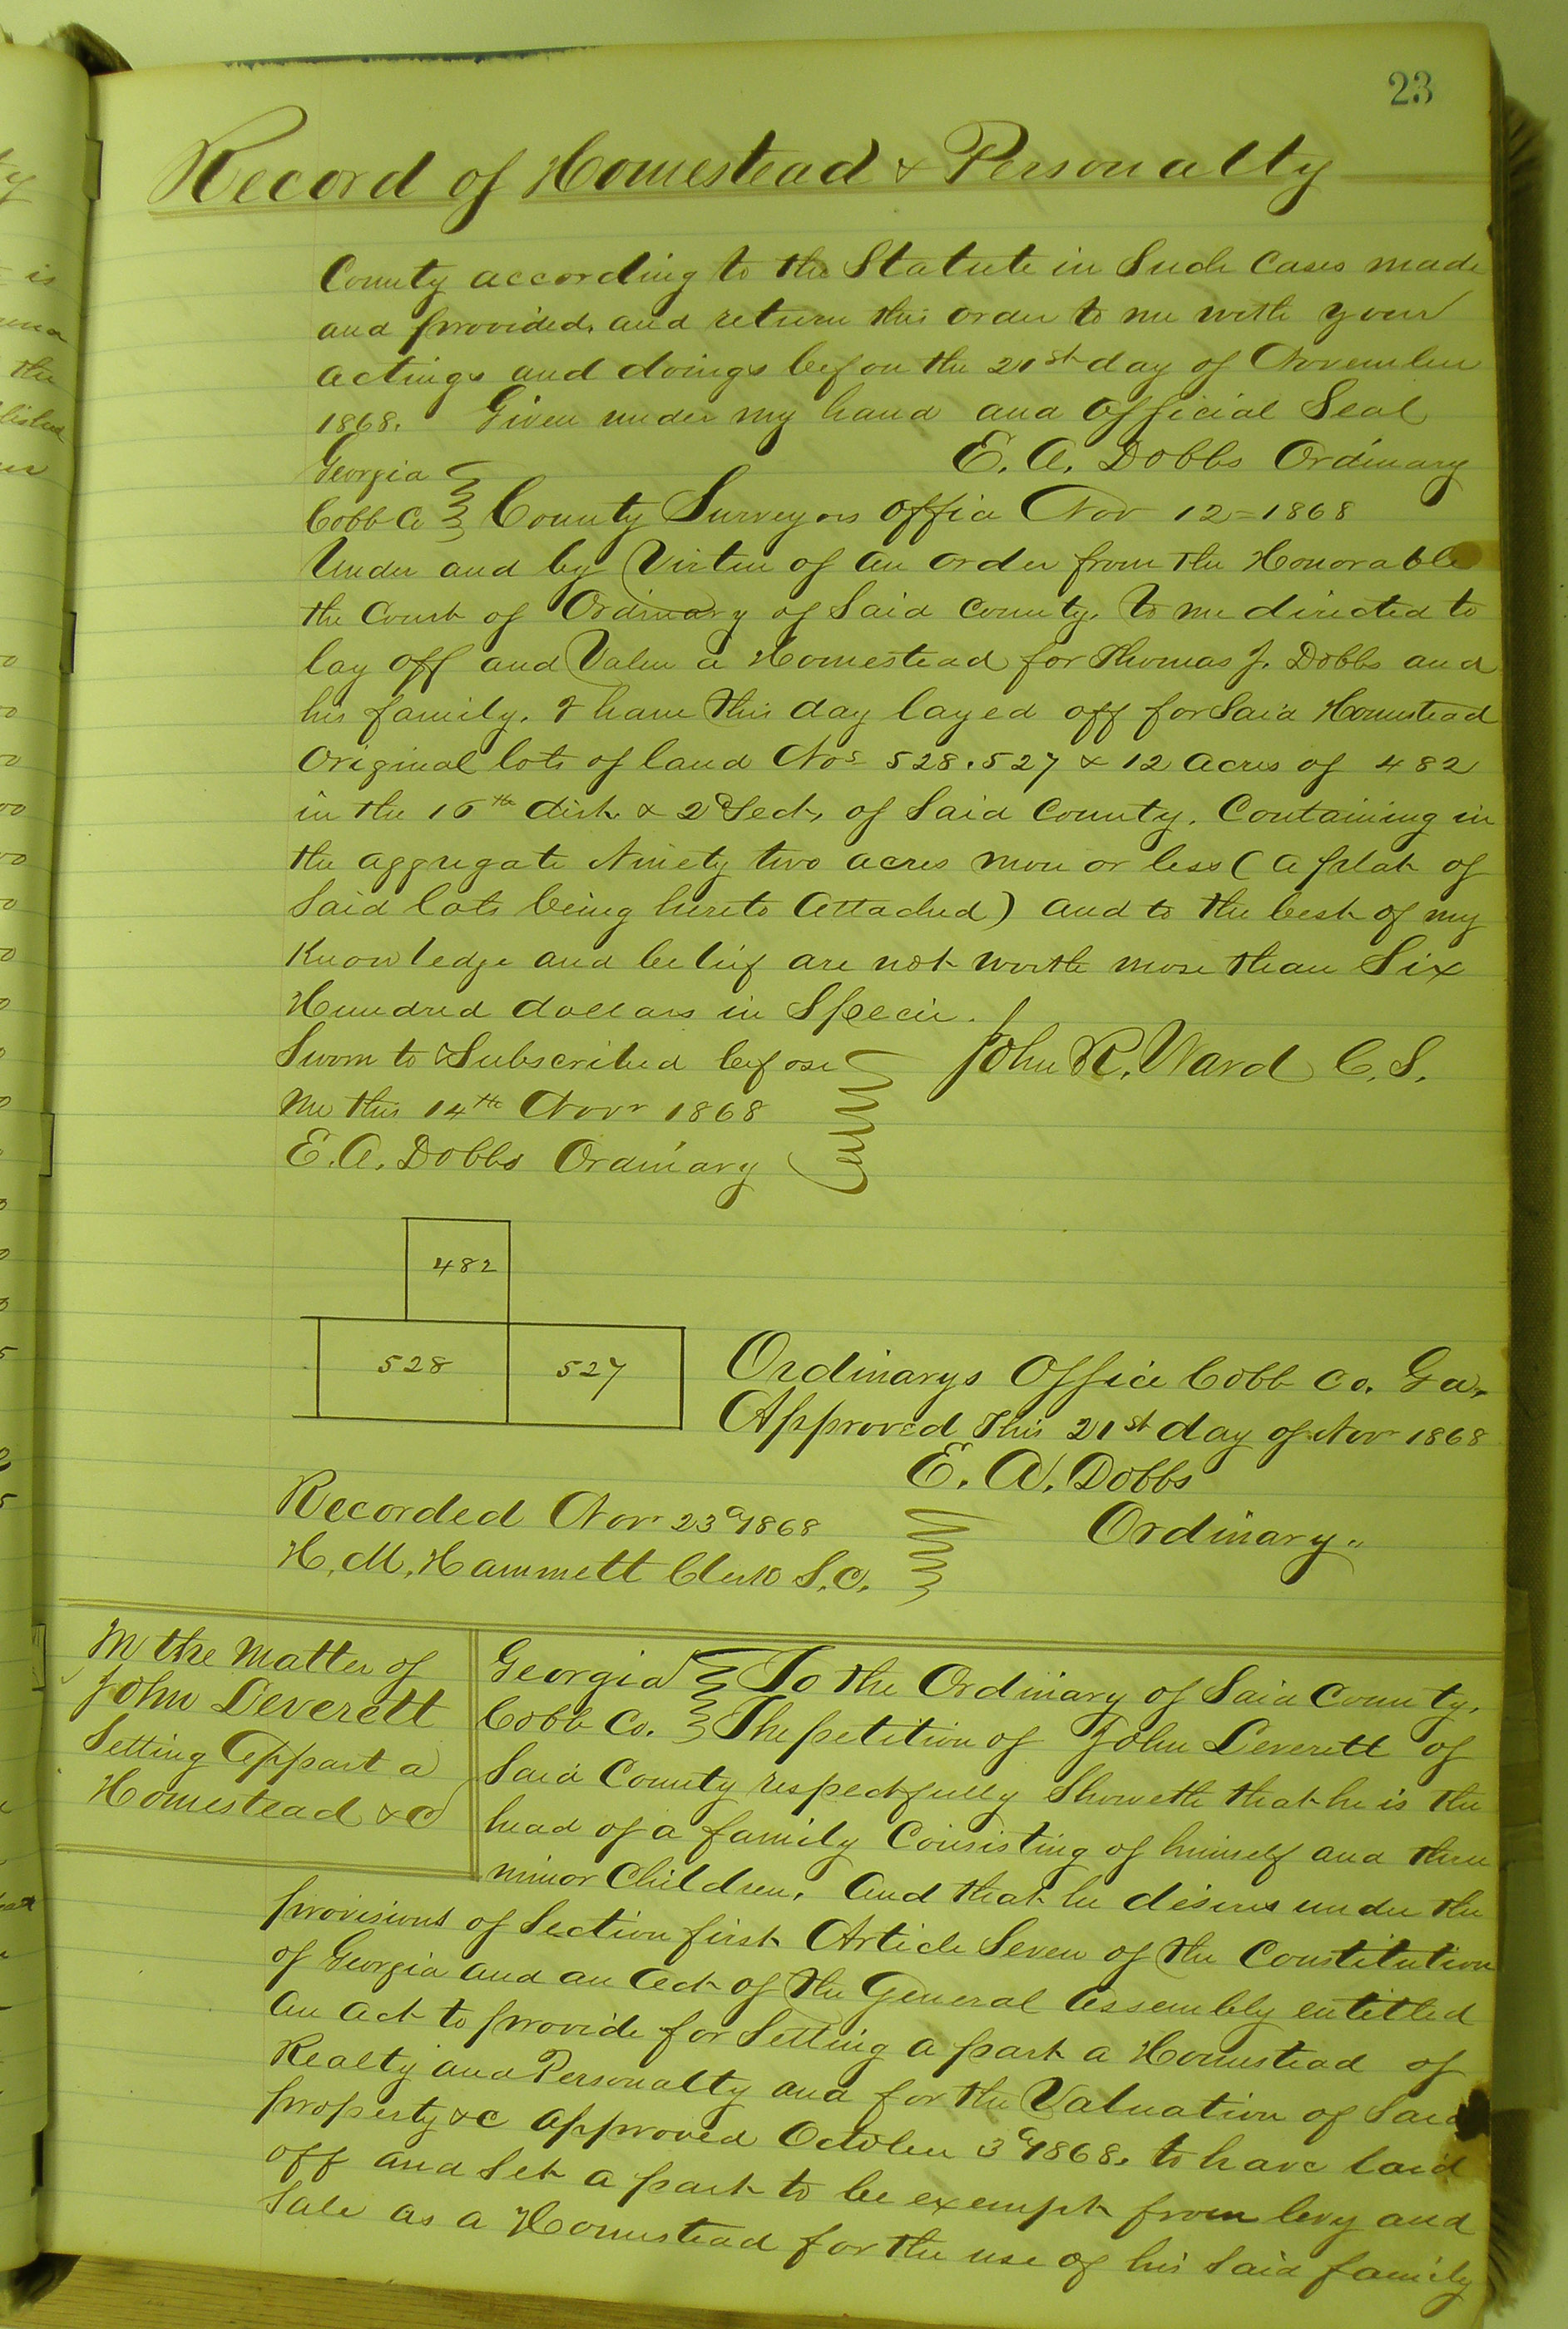 23
Record of Homestead & Personalty
County according to the Statute in Such Cases made
and provided, and return this order to me with your
actings and doings before the 21st day of November
1868. Given under my hand and official Seal
E. A. Dobbs Ordinary
Georgia
Cobb Co County Surveyors office Nov 12=1868
Under and by Virtue of an order from the Honorable
the Court of Ordinary of Said County, to me directed to
lay off and Value a Homestead for Thomas J. Dobbs and
his family. I have this day layed off for Said Homestead
Original lots of land Nos 528. 527 & 12 acres of 482
in the 16th dist. & 2d Sect, of Said County. Containing in
the aggregate Ninety two acres more or less (a plat of
Said lots being hereto attached) and to the best of my
Knowledge and belief are not worth more than Six
Hundred dollars in Specie.
Sworn to & Subscribed before
John R. Ward C. S.
me this 14th Novr 1868
E. A. Dobbs Ordinary
482
528 527
Ordinarys Office Cobb Co. Ga.
Approved this 21st day of Nov 1868
E. A. Dobbs
Ordinary
Recorded Nov 23d 1868
H. M. Hammett Clerk S. C.
In the Matter of
John Leverett
Setting Appart a
Homestead &C
Georgia To the Ordinary of Said County.
Cobb Co. The petition of John Leverett of
Said County respectfully Showeth that he is the
head of a family Consisting of himself and three
minor Children. And that he desires under the
provisions of Section first Article Seven of the Constitution
of Georgia and an Act of the General Assembly entitled
An act to provide for Setting a part a Homestead of
Realty and Personalty and for the Valuation of Said
property &C approved October 3d 1868. to have laid
off and Set a part to be exempt from levy and
Sale as a Homestead for the use of his Said family